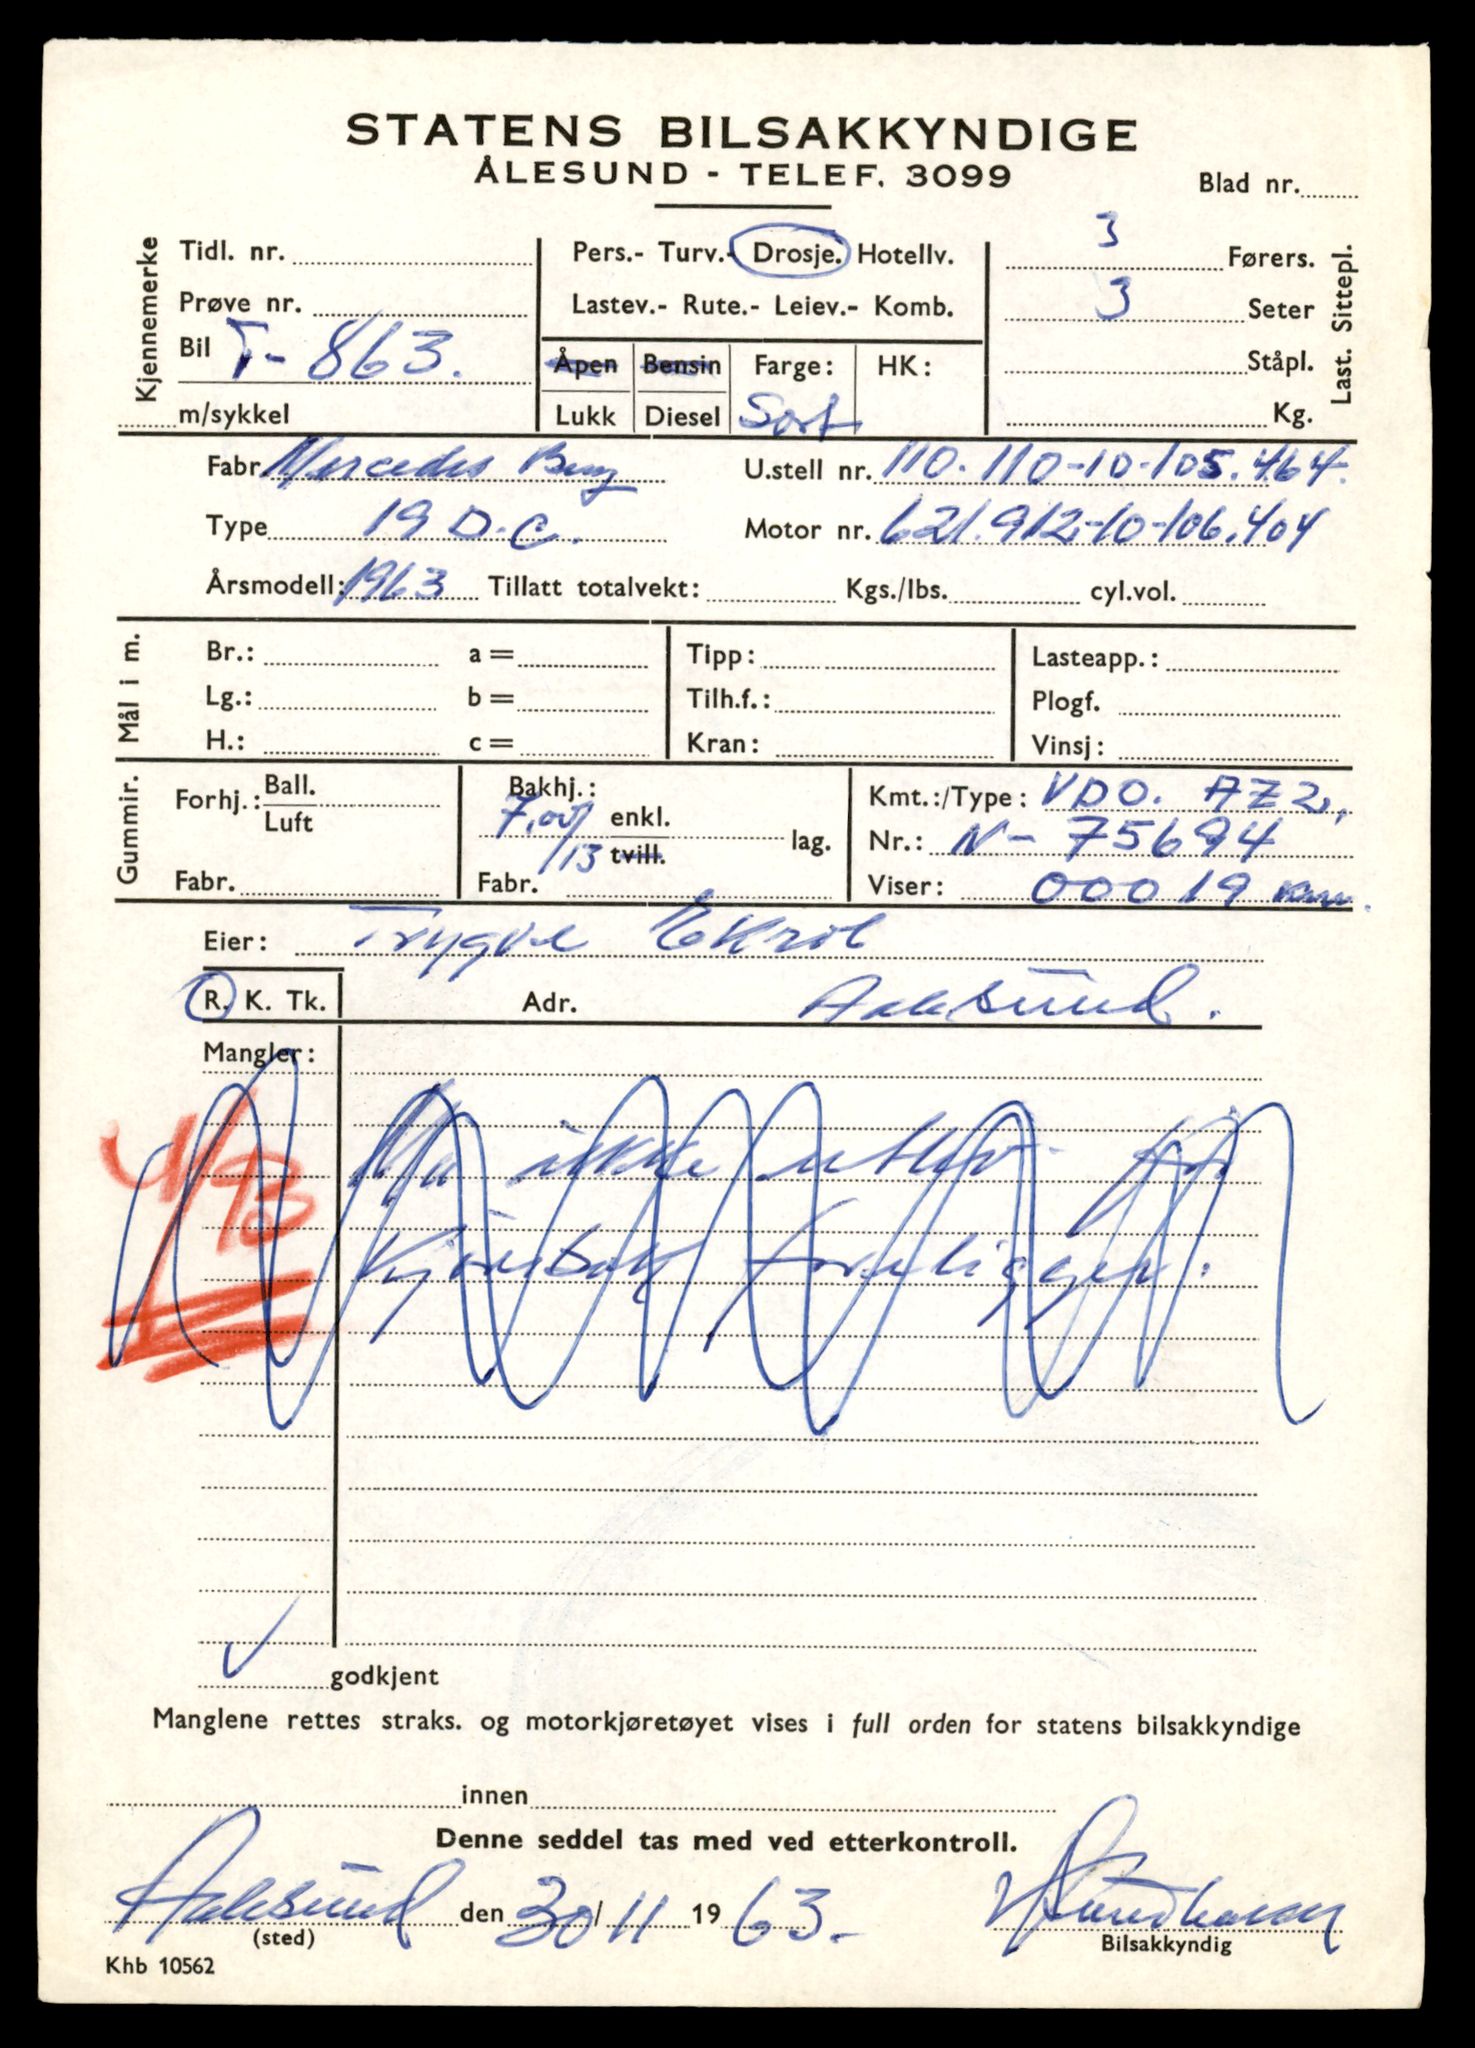 STATENS BILSAKKYNDIGE
ÅLESUND - TELEF. 3099
Blad nr.
Kjennemerke
Tidl. nr.
Prøve nr.
Bil T-863.
m/sykkel
Pers.- Turv.- Drosje. Hotellv.
Lastev.- Rute.- Leiev.- Komb.
Åpen Bensin Farge: HK:
Lukk Diesel Sort
3 Førers.
3 Seter
Ståpl.
Kg.
Last. Sittepl.
Fabr. Mercedes Benz U.stell nr. 110.110-10-105.464.
Type 19 D.C. Motor nr. 621.912-10-106.404
Årsmodell: 1963 Tillatt totalvekt: Kgs./lbs. cyl.vol.
Mål i m.
Br.: a = Tipp: Lasteapp.:
Lg.: b = Tilh.f.: Plogf.
H.: c = Kran: Vinsj:
Gummir.
Forhj.: Ball.
Luft
Fabr.
Bakhj.:
7,00/13 enkl.
tvill. lag.
Fabr.
Kmt.:/Type: VDO. AZ2,
Nr.: N-75694
Viser: 00019 km.
Eier: Trygve Ekrol
R. K. Tk. Adr. Aalesund.
Mangler:
4/
Må ikke før
foreligger.
godkjent
Manglene rettes straks. og motorkjøretøyet vises i full orden for statens bilsakkyndige
innen
Denne seddel tas med ved etterkontroll.
Aalesund den 30/11 1963.-
(sted) Bilsakkyndig
Khb 10562